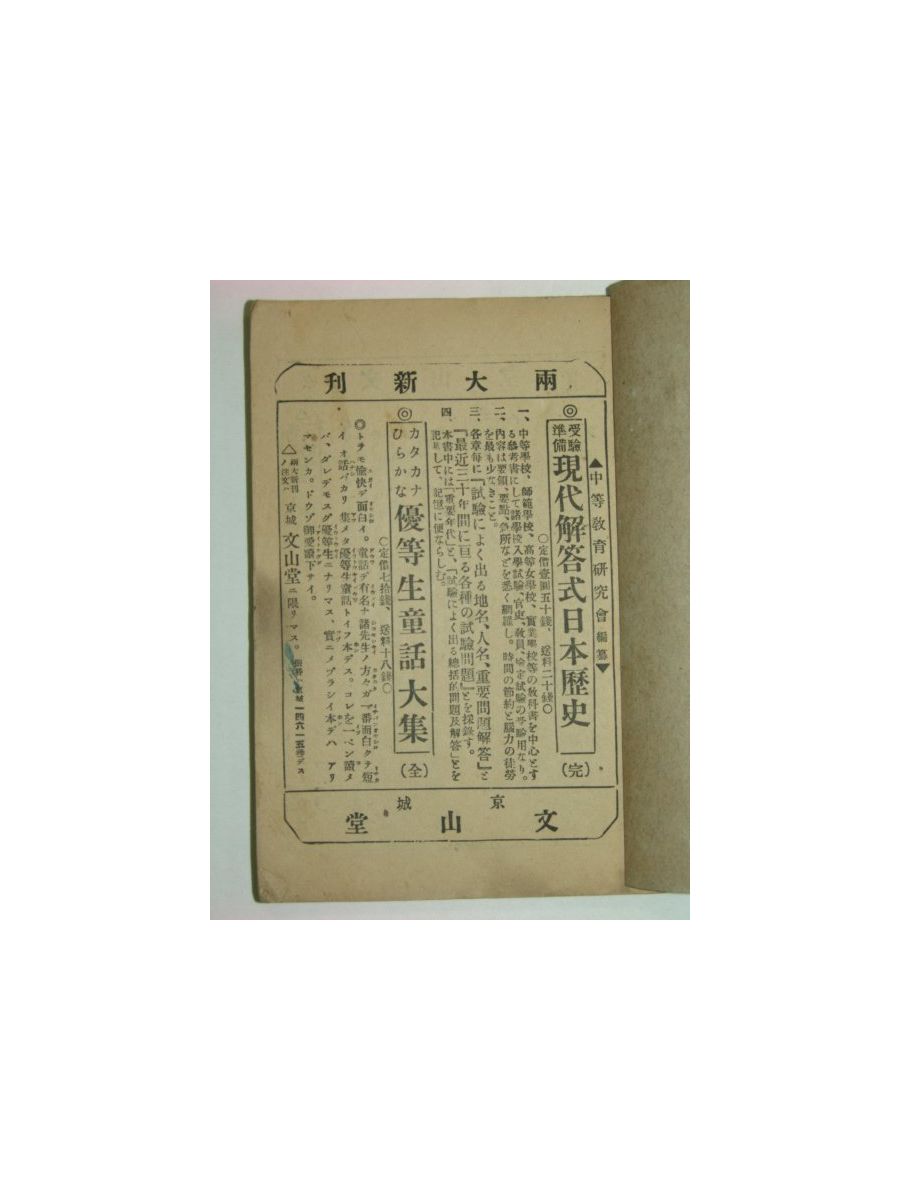 兩大新刊
▲中等敎育硏究會編纂▼
◎受驗準備 現代解答式日本歷史(完)
〇定價壹圓五十錢、送料二十錢〇
一、中等學校、師範學校、高等女學校、實業學校等の敎科書を中心とす
る參考書にして諸學校入學試驗、官吏、敎員、檢定試驗の受驗用なり。
二、內容は要領、要點、急所などを悉く網羅し。時間の節約と腦力の徒勞
を最も少なきこと。
三、各章每に『試驗によく出る地名、人名、重要問題解答』と
『最近三十年間に亘る各種の試驗問題』とを採錄す。
四、本書中には「重要年代」と、「試驗によく出る總括的問題及解答」とを
記載して、記憶に便ならしむ。
◎カタカナ ひらかな 優等生童話大集(全)
〇定價七拾錢、送料十八錢〇
◎トテモ愉快デ面白イ。童話デ有名ナ諸先生ノ方々ガ一番面白クテ短
イオ話バカリ集メタ優等生童話トイフ本デス。コレヲ一ペン讀メ
バ、ダレデモスグ優等生ニナリマス、實ニメヅラシイ本デハアリ
マセンカ。ドウゾ御愛讀下サイ。
△兩大新刊ノ注文ハ 京城 文山堂ニ限リマス。 一四六一五番デス
京城
文山堂